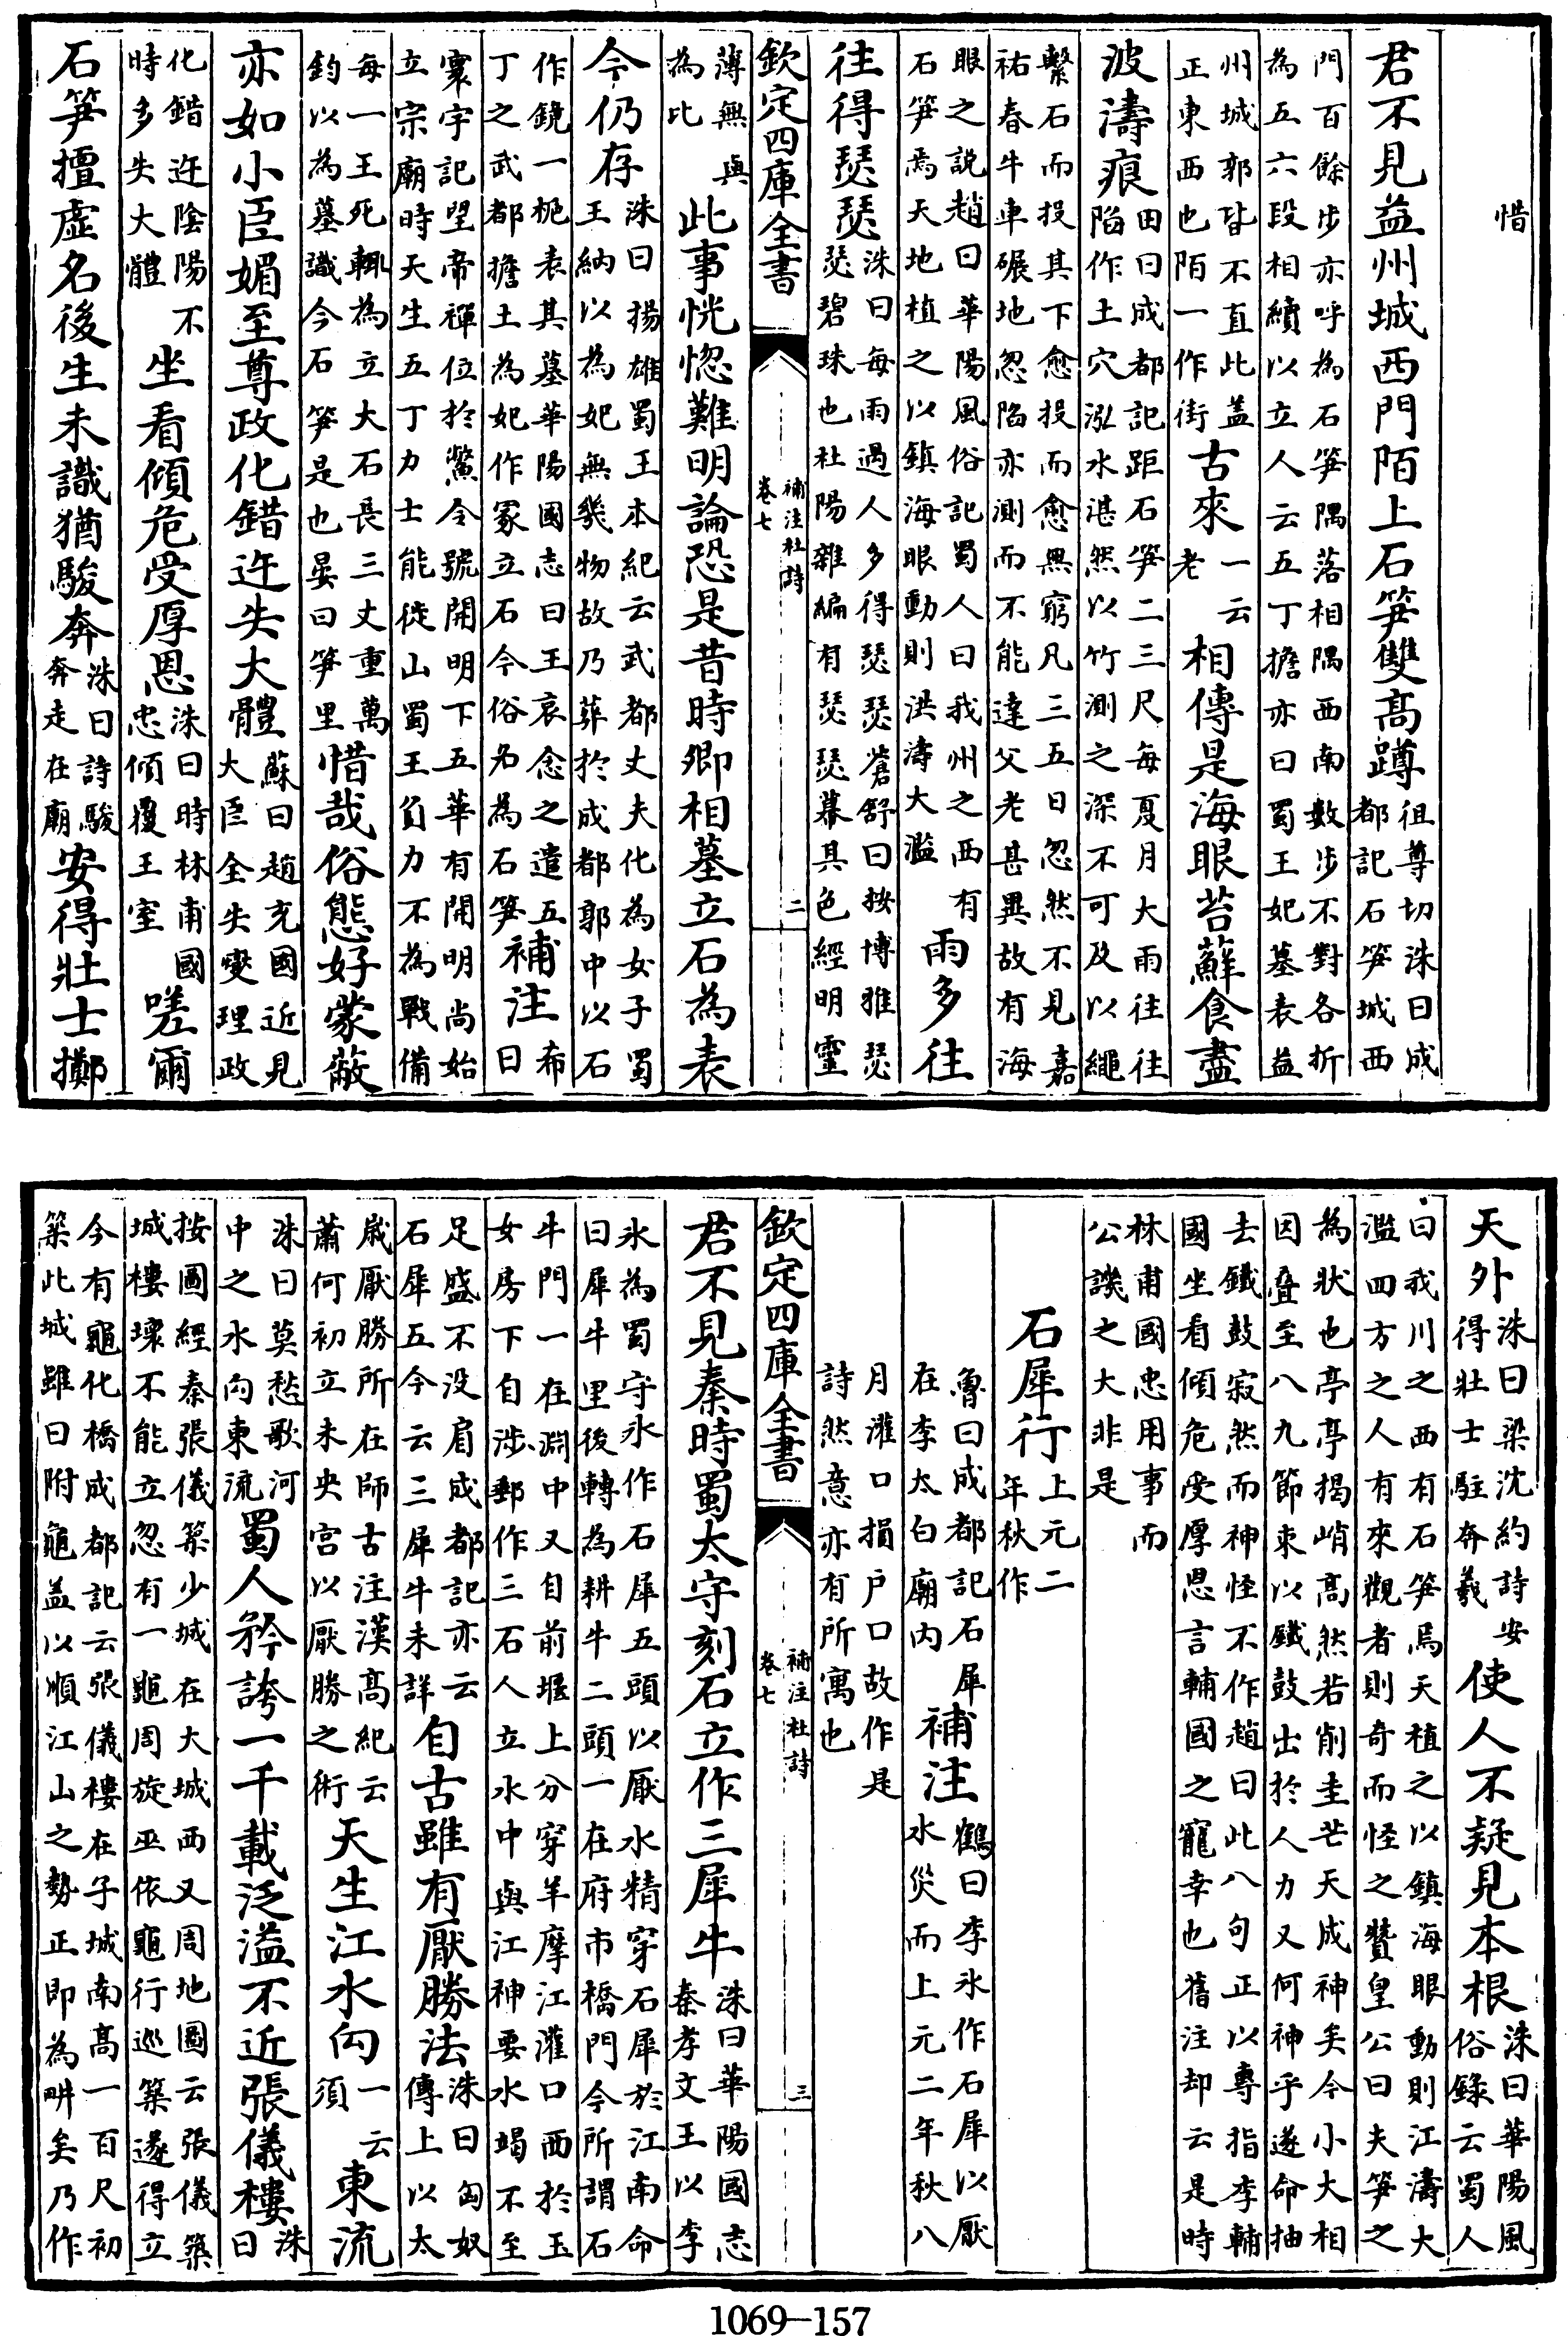 惜
君不見益州城西門陌上石笋雙高蹲徂尊切洙曰成都記石笋城西
門百餘步亦呼為石笋隅落相隅西南數步不對各折為五六段相續以立人云五丁擔亦曰蜀王妃墓表益
州城郭皆不直此盖正東西也陌一作街古來一云老相傳是海眼苔蘚食盡
波濤痕田曰成都記距石笋二三尺每夏月大雨往往陷作土穴泓水湛然以竹測之深不可及以繩
繫石而投其下愈投而愈無窮凡三五日忽然不見嘉祐春牛車碾地忽陷亦測而不能達父老甚異故有海
眼之說趙曰華陽風俗記蜀人曰我州之西有石笋焉天地植之以鎮海眼動則洪濤大濫雨多往
往得瑟瑟洙曰每雨過人多得瑟瑟蒼舒曰按博雅瑟瑟碧珠也杜陽雜編有瑟瑟幕其色經明靈
欽定四庫全書 補注杜詩 卷七 二
薄無與為比此事恍惚難明論恐是昔時卿相墓立石為表
今仍存洙曰揚雄蜀王本紀云武都丈夫化為女子蜀王納以為妃無幾物故乃葬於成都郭中以石
作鏡一枙表其墓華陽國志曰王哀念之遣五丁之武都擔土為妃作冢立石今俗名為石笋補注希曰
寰宇記望帝禪位於鱉令號開明下五葉有開明尚始立宗廟時天生五丁力士能徙山蜀王負力不為戰備
每一王死輒為立大石長三丈重萬鈞以為墓識今石笋是也晏曰笋里惜哉俗態好蒙蔽
亦如小臣媚至尊政化錯迕失大體蘇曰趙充國近見大臣全失變理政
化錯迕陰陽不時多失大體坐看傾危受厚恩洙曰時林甫國忠傾覆王室嗟爾
石笋擅虛名後生未識猶駿奔洙曰詩駿奔走在廟安得壯士擲
天外洙曰梁沈約詩安得壯士駐奔羲使人不疑見本根洙曰華陽風俗錄云蜀人
曰我川之西有石笋焉天植之以鎮海眼動則江濤大濫四方之人有來觀者則奇而怪之贊皇公曰夫笋之
為狀也亭亭揭峭高然若削圭芒天成神矣今小大相因疊至八九節束以鐵鼓出於人力又何神乎遂命抽
去鐵鼓寂然而神怪不作趙曰此八句正以專指李輔國坐看傾危受厚恩言輔國之寵幸也舊注却云是時
林甫國忠用事而公譏之大非是
石犀行上元二年秋作
魯曰成都記石犀在李太白廟內補注鶴曰李氷作石犀以厭水災而上元二年秋八
月灌口損户口故作是詩然意亦有所寓也
欽定四庫全書 補注杜詩 卷七 三
君不見秦時蜀太守刻石立作三犀牛洙曰華陽國志秦孝文王以李
氷為蜀守氷作石犀五頭以厭水精穿石犀於江南命曰犀牛里後轉為耕牛二頭一在府市橋門今所謂石
牛門一在淵中又自前堰上分穿羊摩江灌口西於玉女房下自涉郵作三石人立水中與江神要水竭不至
足盛不没肩成都記亦云石犀五今云三犀牛未詳自古雖有厭勝法洙曰匈奴傳上以太
歲厭勝所在師古注漢高紀云蕭何初立未央宫以厭勝之術天生江水向一云須東流
洙曰莫愁歌河中之水向東流蜀人矜誇一千載泛溢不近張儀樓洙曰
按圖經秦張儀築少城在大城西又周地圖云張儀築城樓壞不能立忽有一龜周旋巫依龜行巡築遂得立
今有龜化橋成都記云張儀樓在子城南高一百尺初築此城雖曰附龜盖以順江山之勢正即為畊矣乃作
1069—157